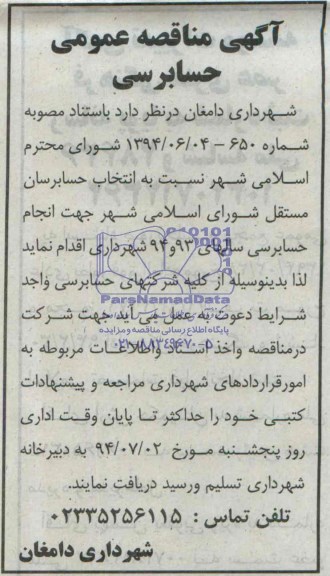 آگهی مناقصه عمومی
حسابرسی
شهرداری دامغان درنظر دارد باستناد مصوبه
شماره ۶۵۰ – ۱۳۹۴/۰۶/۰۴ شورای محترم
اسلامی شهر نسبت به انتخاب حسابرسان
مستقل شورای اسلامی شهر جهت انجام
حسابرسی سالهای ۹۳و۹۴ شهرداری اقدام نماید
لذا بدینوسیله از کلیه شرکتهای حسابرسی واجد
ParsNamadData
شرایط دعوت به عمل می آید جهت شرکت
پایگاه اطلاع رسانی مناقصه و مزایده
درمناقصه واخذ اسناد واطلاعات مربوطه به
۰۲۱-۸۸۳۴۹۶۷۰-۵
امورقراردادهای شهرداری مراجعه و پیشنهادات
کتبی خود را حداکثر تا پایان وقت اداری
روز پنجشنبه مورخ ۹۴/۰۷/۰۲ به دبیرخانه
شهرداری تسلیم ورسید دریافت نمایند.
تلفن تماس : ۰۲۳۳۵۲۵۶۱۱۵
شهرداری دامغان